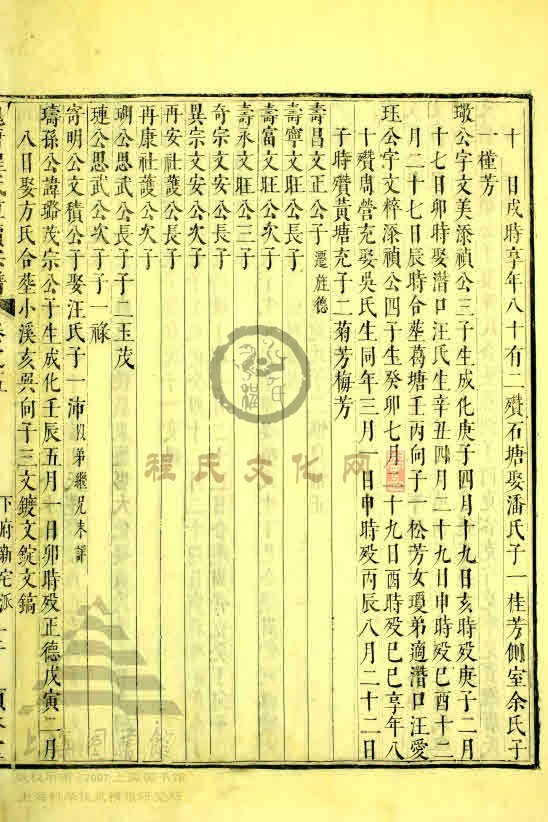 十　日戌時享年八十有二殯石塘娶潘氏子一桂芳側室余氏子
一槿芳
璥公字文美添禎公三子生成化庚子四月十九日亥時歿庚子二月
十七日卯時娶潛口汪氏生辛丑四月二十九日申時歿己酉十二
月二十七日辰時合塟葛塘壬丙向子一松芳女瓊弟適潛口汪愛
珏公字文粹添禎公四子生癸卯七月二十九日酉時歿己巳享年八
十殯周營充娶吳氏生同年三月一日申時歿丙辰八月二十二日
子時殯黃塘充子二菊芳梅芳
壽昌文正公子 遷旌德
壽寧文旺公長子
壽富文旺公次子
壽永文旺公三子
奇宗文安公長子
異宗文安公次子
再安社護公長子
再康社護公次子
瑚公思武公長子子二玉茂
璉公思武公次子子一祿
寄明公文積公子娶汪氏子一沛
璹孫公諱璐茂宗公子生成化壬辰五月一日卯時歿正德戊寅二月
八日娶方氏合塟小溪亥巽向子三文鍍文錠文鎬
下府新宅派
程氏文化网
上海图书馆